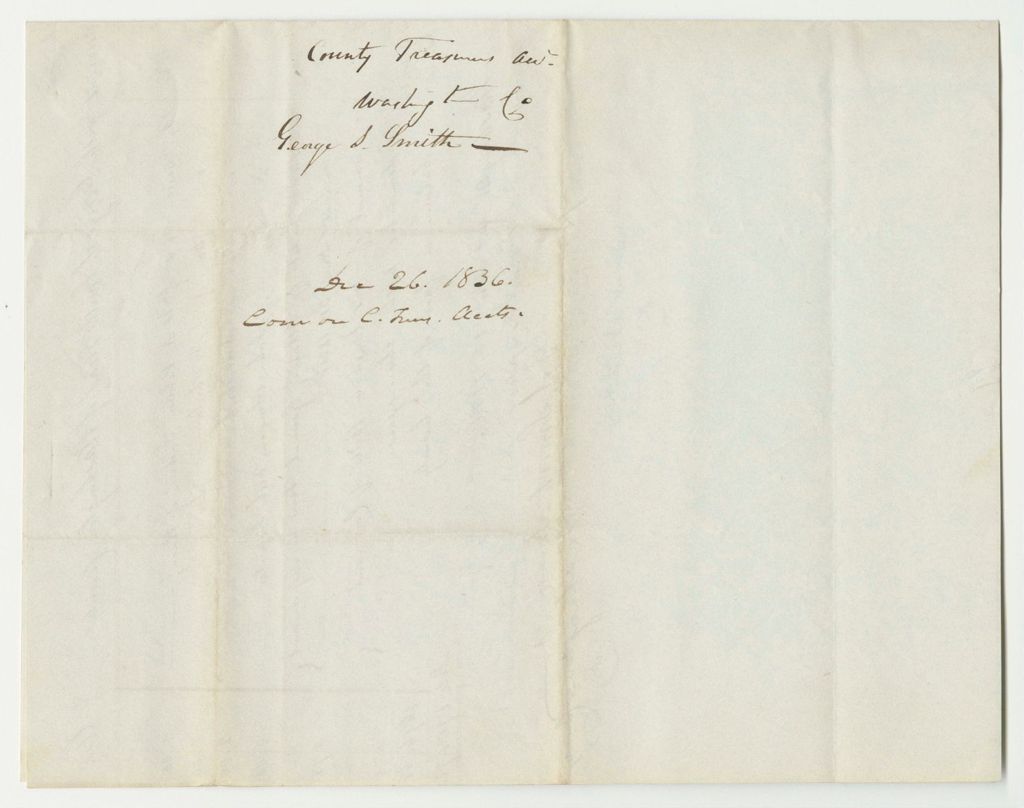 County Treasurers acct.
Washingt Co
George S. Smith —
Dec 26. 1836.
Com on C. Treas. Accts.